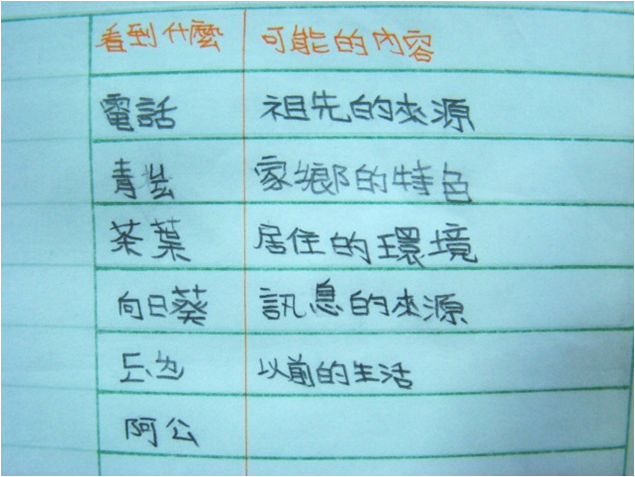 看到什麼 可能的內容
電話 祖先的來源
青 家鄉的特色
茶葉 居住的環境
向日葵 訊息的來源
以前的生活
阿公